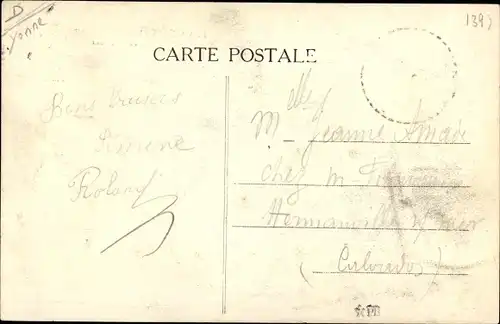 D
Yonne
139
CARTE POSTALE
Bons baisers
Simone
Roland
Mlle Jeanne
chez M
Hermanville s/ mer
(Calvados)